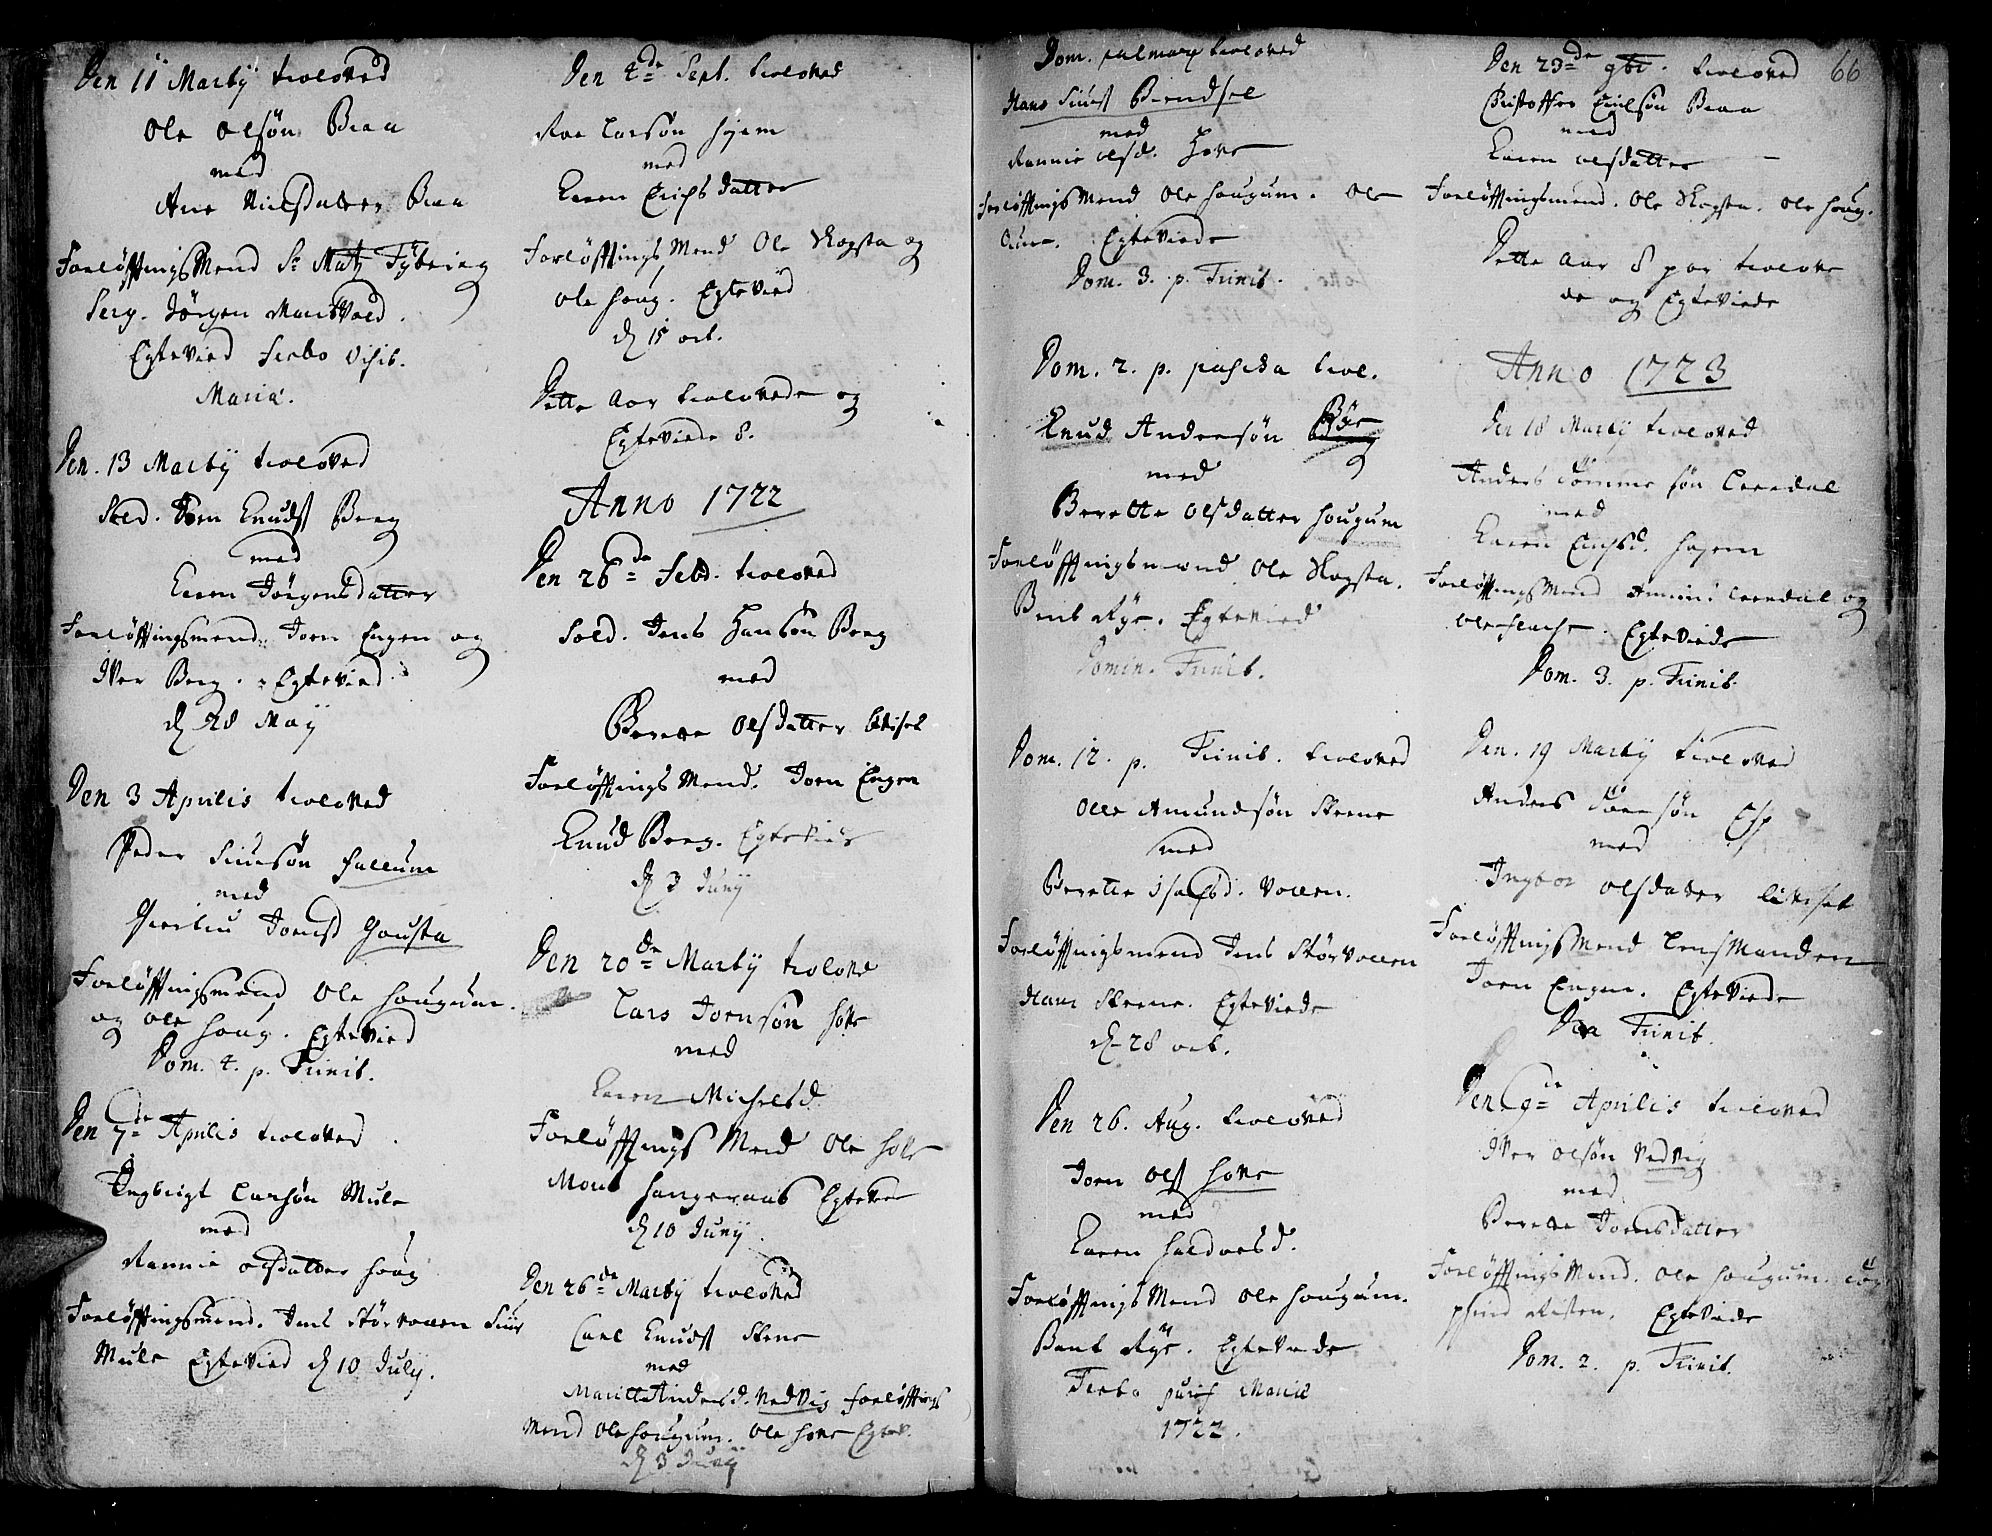 Den 11 Martÿ troloved
Ole Olsøn Braa
med
Ane Nielsdatter Braa
Forløfftings Mend Sr Matz Tÿbring
Serg. Jørgen Marsvold.
Egtevied Festo Visit.
Mariæ.
Den. 13 Martÿ troloved
Sold. Joen Knudst Berg
med
Karen Jørgensdatter
Forløfftingsmend. Joen Engen og
Iver Berg. Egtevied
d. 28 Maÿ
Den 3 Aprilis troloved
Peder Siursøn Hallum
med
Joensd Gousta
Forløfftingsmend Ole Hougum.
og Ole Houg. Egtevied
Dom. 4. p. Trinit.
Den 7de Aprilis troloved
Engbrigt Larsøn Mule
med
Rannie Olsdatter Houg
Forløfftingsmend. Jens Størvollen Siur
Mule Egtevied d 10 Julÿ.
Den 4de Sept. troloved
Roe Larsøn Hjem
med
Karen Erichsdatter
Forløfftings Mend Ole Skogsta og
Ole Houg. Egtevied
d 15 oct.
Dette Aar trolovede og
Egteviede 8.
Anno 1722
Den 26de Febr. troloved
Sold. Jens Hansøn Berg
med
Berette Olsdatter
Forløfftings Mend. Joen Engen
Knud Berg. Egtevied
d 3 Junÿ
Den 20de Martÿ trolovd
Lars Joensøn Holte
med
Karen Michelsd.
Forløfftings Mend Ole Holte
Mons Hangeraas Egteviede
d 10 Junÿ
Den 26de Martÿ troloved
Carl Knudst Skrove
med
Maritte Andersd. Vedvig Forløfftings
Mend Ole Hougum. Ole Hove Egtev.
d 3 Junÿ
Dom. palmarum troloved
Hans Siurst
med
Rannie Olsd. Hove
Forløfftings Mend Ole Hougum. Ole
Egteviede
Dom. 3. p. Trinit.
Dom. 2. p. pascha trol.
Knud Andersøn Rÿe
med
Berette Olsdatter Hougum
Forløfftingsmend. Ole Skogsta.
Bent Rÿe. Egtevied
Domin. Trinit.
Dom. 12. p. Trinit. troloved
Olle Amundsøn Skrove
med
Berette Vollen.
Forløfftingsmend Jens Størvollen
Hans Skrove. Egteviede
d. 28 oct.
Den 26. Aug. troloved
Joen Olst Hove
med
Karen Haldorsd.
Forløfftings Mend Ole Hougum.
Bent Rÿe. Egteviede
Festo purif Mariæ
1722.
66
Den 23de 9br. troloved
Christoffer Emilsøn Braa
med
Karen Olsdatter
Forløfftingsmend. Ole Skogsta. Ole Houg.
Dette Aar 8 par trolove
de og Egteviede
Anno 1723
Den 18 Martÿ troloved
Anders Tommesøn Leredal
med
Karen Erichsd. Hojem
Forløfftings Mend Leredal og
Ole Egteviede
Dom. 3. p. Trinit.
Den. 19 Martÿ trolovet
Anders Esp
med
Ingbor Olsdater
Forløfftings Mend Lensmanden
Joen Engen. Egteviede
Dca Trinit.
Den 9de Aprilis trolovet
Iver Olsøn Vedvig
med
Berette Joensdatter
Forløfftings Mend. Ole Hougum.
Risten. Egteviede
Dom. 2. p. Trinit.